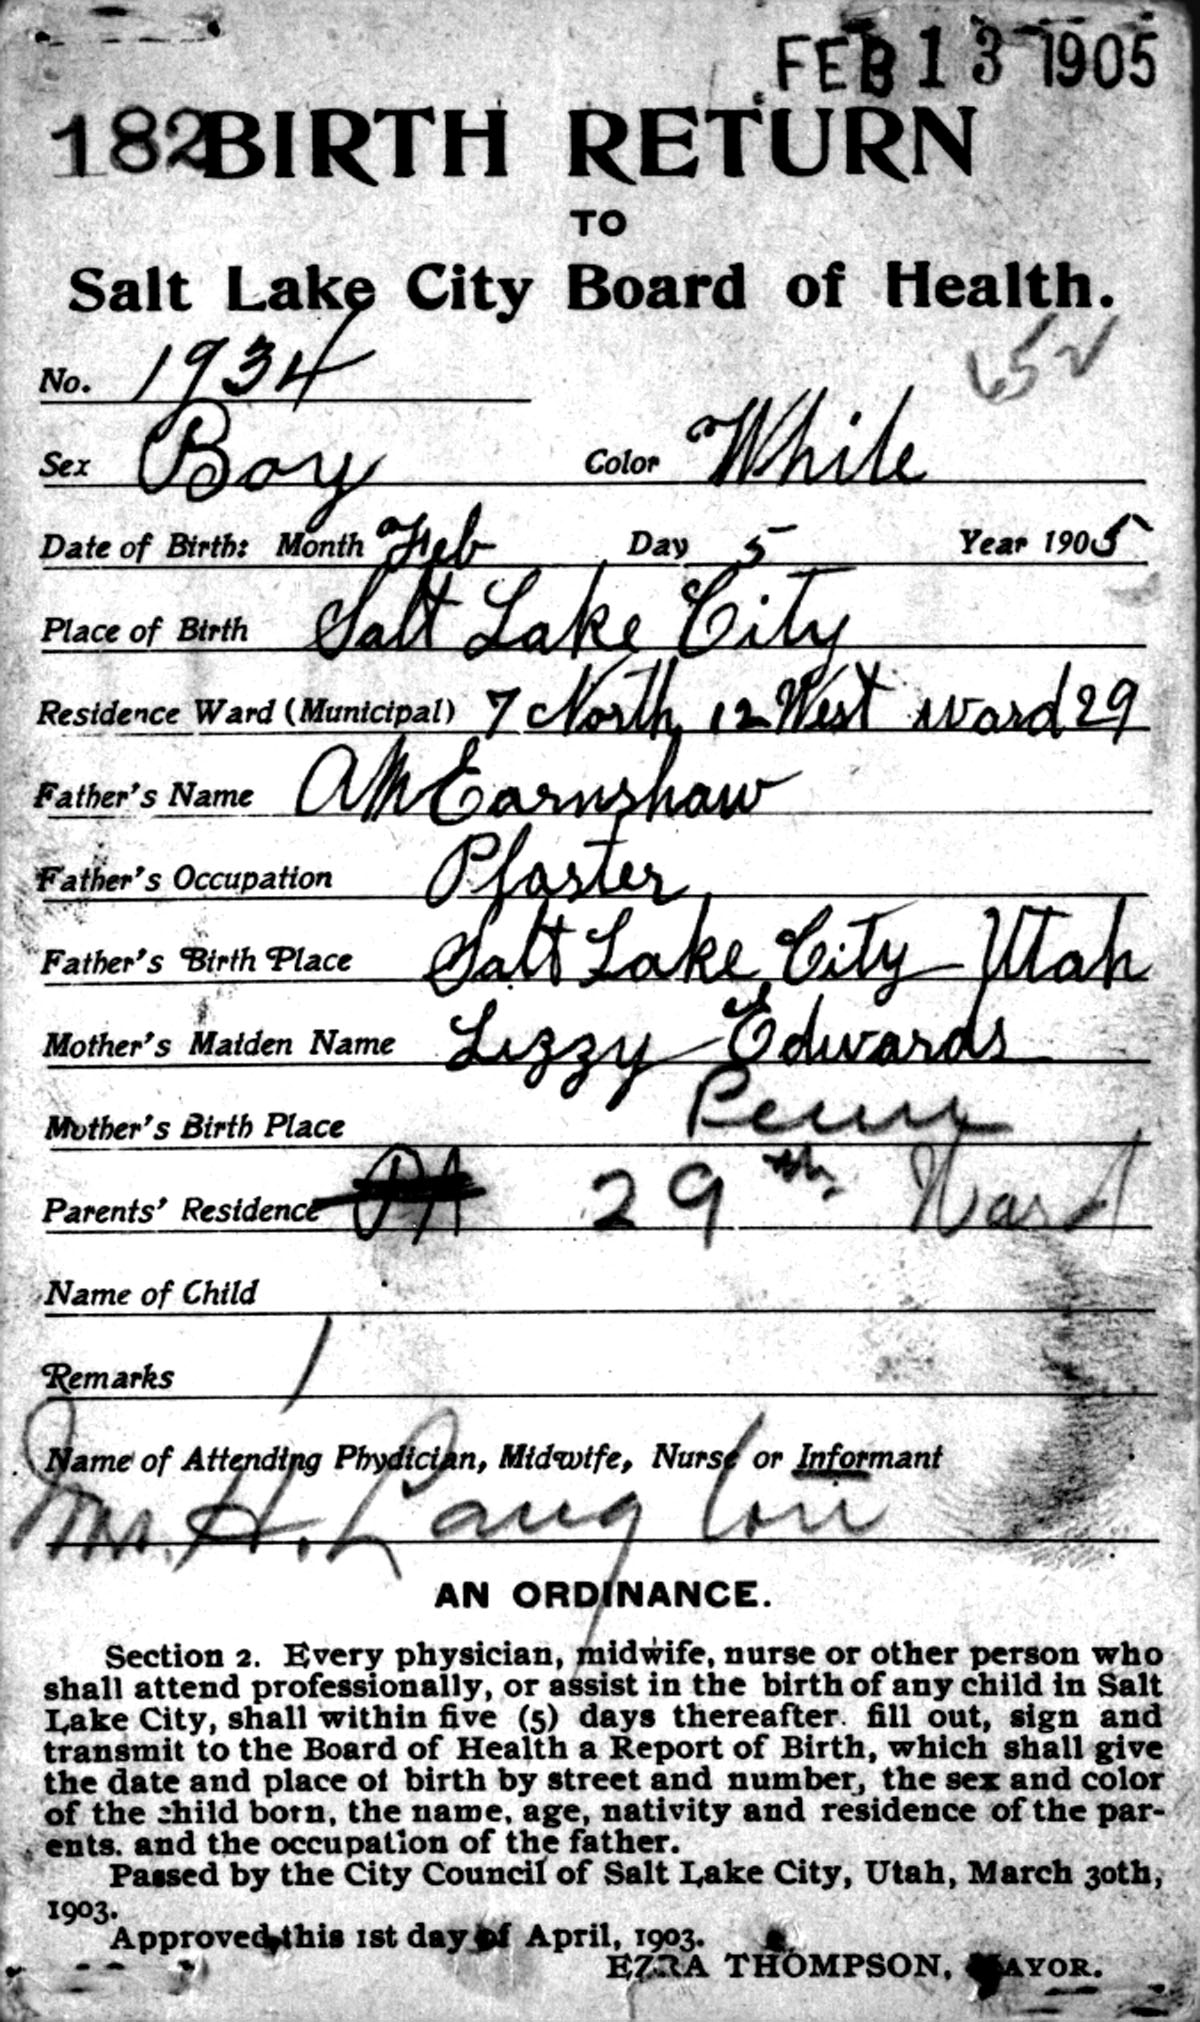 FEB 13 1905
182 BIRTH RETURN
TO
Salt Lake City Board of Health.
No. 1934 652
Sex Boy Color White
Date of Birth: Month Feb Day 5 Year 1905
Place of Birth Salt Lake City
Residence Ward (Municipal) 7 North 12 West ward 29
Father's Name AM Earnshaw
Father's Occupation Plaster
Father's Birth Place Salt Lake City Utah
Mother's Maiden Name Lizzy Edwards
Mother's Birth Place Penn
Parents' Residence PA 29th Ward
Name of Child
Remarks
Name of Attending Phydician, Midwife, Nurse or Informant
H. Langton
AN ORDINANCE.
Section 2. Every physician, midwife, nurse or other person who
shall attend professionally, or assist in the birth of any child in Salt
Lake City, shall within five (5) days thereafter fill out, sign and
transmit to the Board of Health a Report of Birth, which shall give
the date and place of birth by street and number, the sex and color
of the child born, the name, age, nativity and residence of the par-
ents. and the occupation of the father.
Passed by the City Council of Salt Lake City, Utah, March 30th,
1903.
Approved this 1st day of April, 1903.
EZRA THOMPSON, MAYOR.